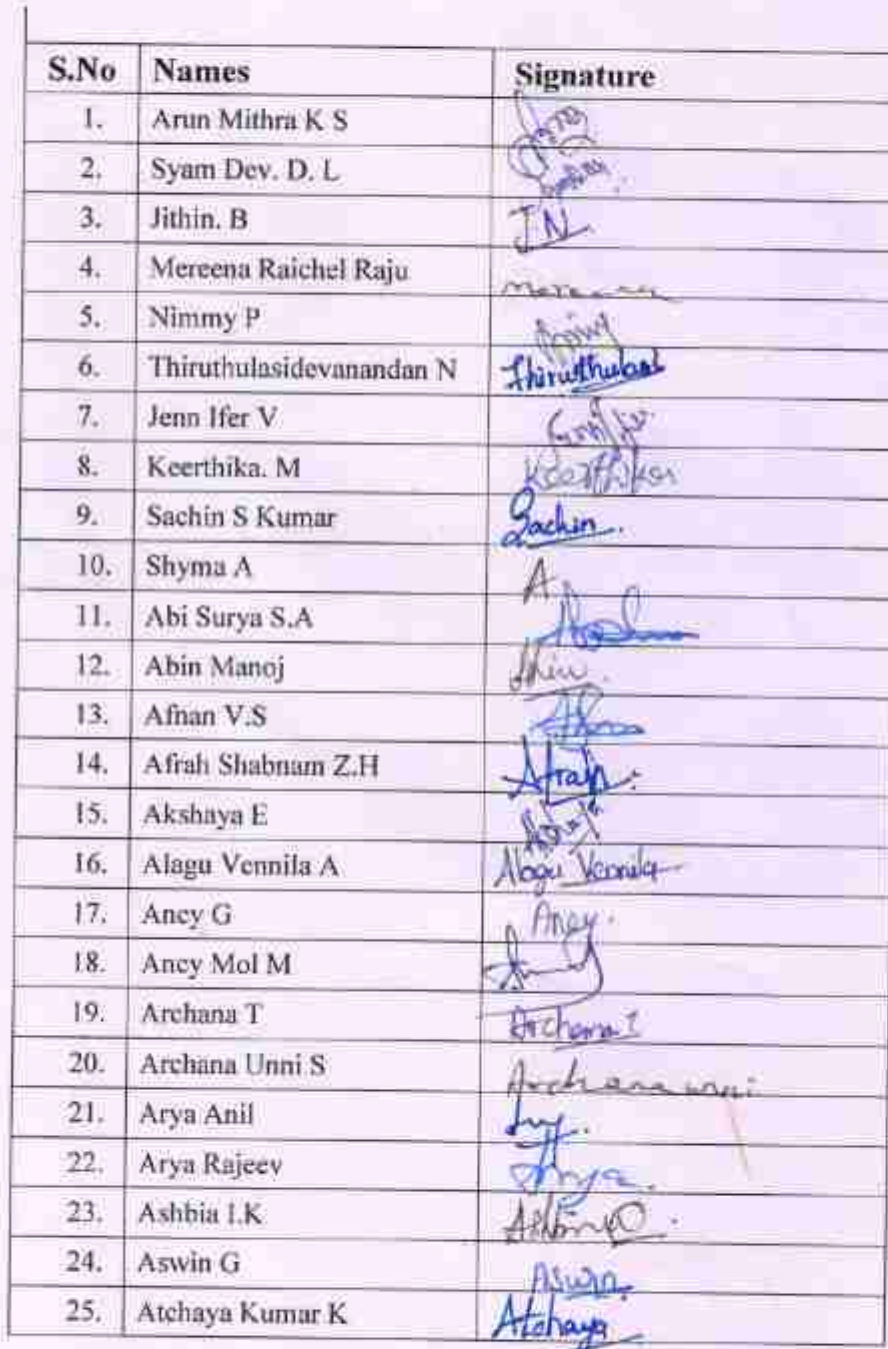 S.No Names Signature
1. Arun Mithra K S
2. Syam Dev. D. L
3. Jithin. B J.N
4. Mereena Raichel Raju Mereena
5. Nimmy P
6. Thiruthulasidevanandan N Thiruthulasi
7. Jenn Ifer V
8. Keerthika. M Keerthika
9. Sachin S Kumar Sachin.
10. Shyma A A
11. Abi Surya S.A
12. Abin Manoj
13. Afnan V.S
14. Afrah Shabnam Z.H Afrah.
15. Akshaya E
16. Alagu Vennila A Alagu Vennila
17. Ancy G Ancy.
18. Ancy Mol M
19. Archana T Archana T
20. Archana Unni S Archana unni
21. Arya Anil
22. Arya Rajeev Arya.
23. Ashbia I.K
24. Aswin G Aswin
25. Atchaya Kumar K Atchaya